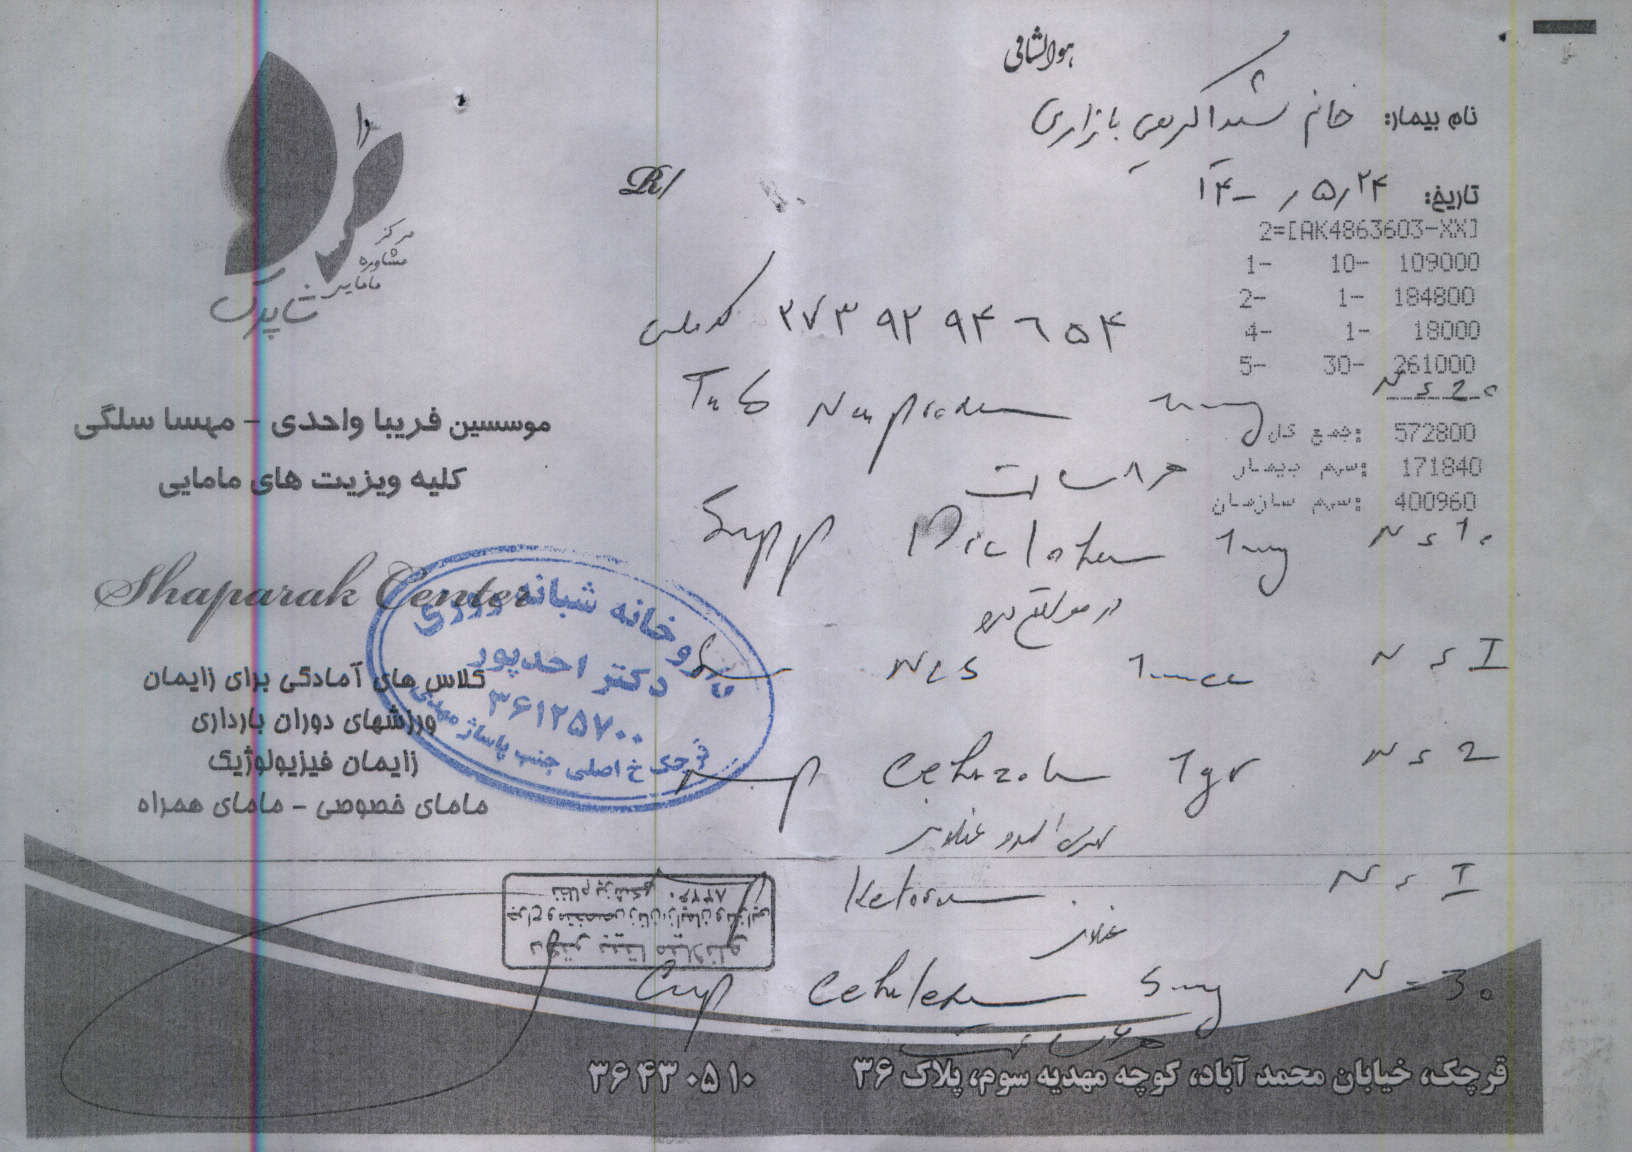 هوالشافی
نام بیمار: خانم شیدا کریمی بازاری
تاریخ: ۱۴۰۰/۵/۲۴
R/
2=[AK4863603-XX]
1- 10- 109000
2- 1- 184800
4- 1- 18000
5- 30- 261000
جمع کل: 572800
سهم بیمار: 171840
سهم سازمان: 400960
کد ملی ۲۷۳۹۲۹۴۶۵۴
Tab Naproxen N=20
هر ۸ ساعت
Supp Diclofenac 100mg N=10
در مواقع درد
N/S 1000cc N=I
Amp Cefazolin 1gr N=2
عضلانی
Ketorolac N=I
عضلانی
Cap Cefalexin 500mg N=30
هر ۶ ساعت
مرکز مشاوره مامایی
شاپرک
موسسین فریبا واحدی - مهسا سلگی
کلیه ویزیت های مامایی
Shaparak Center
کلاس های آمادگی برای زایمان
ورزشهای دوران بارداری
زایمان فیزیولوژیک
مامای خصوصی - مامای همراه
داروخانه شبانه روزی
دکتر احدپور
۳۶۱۲۵۷۰۰
قرچک خ اصلی جنب پاساژ مهدی
قرچک، خیابان محمد آباد، کوچه مهدیه سوم، پلاک ۳۶
۳۶۴۳۰۵۱۰